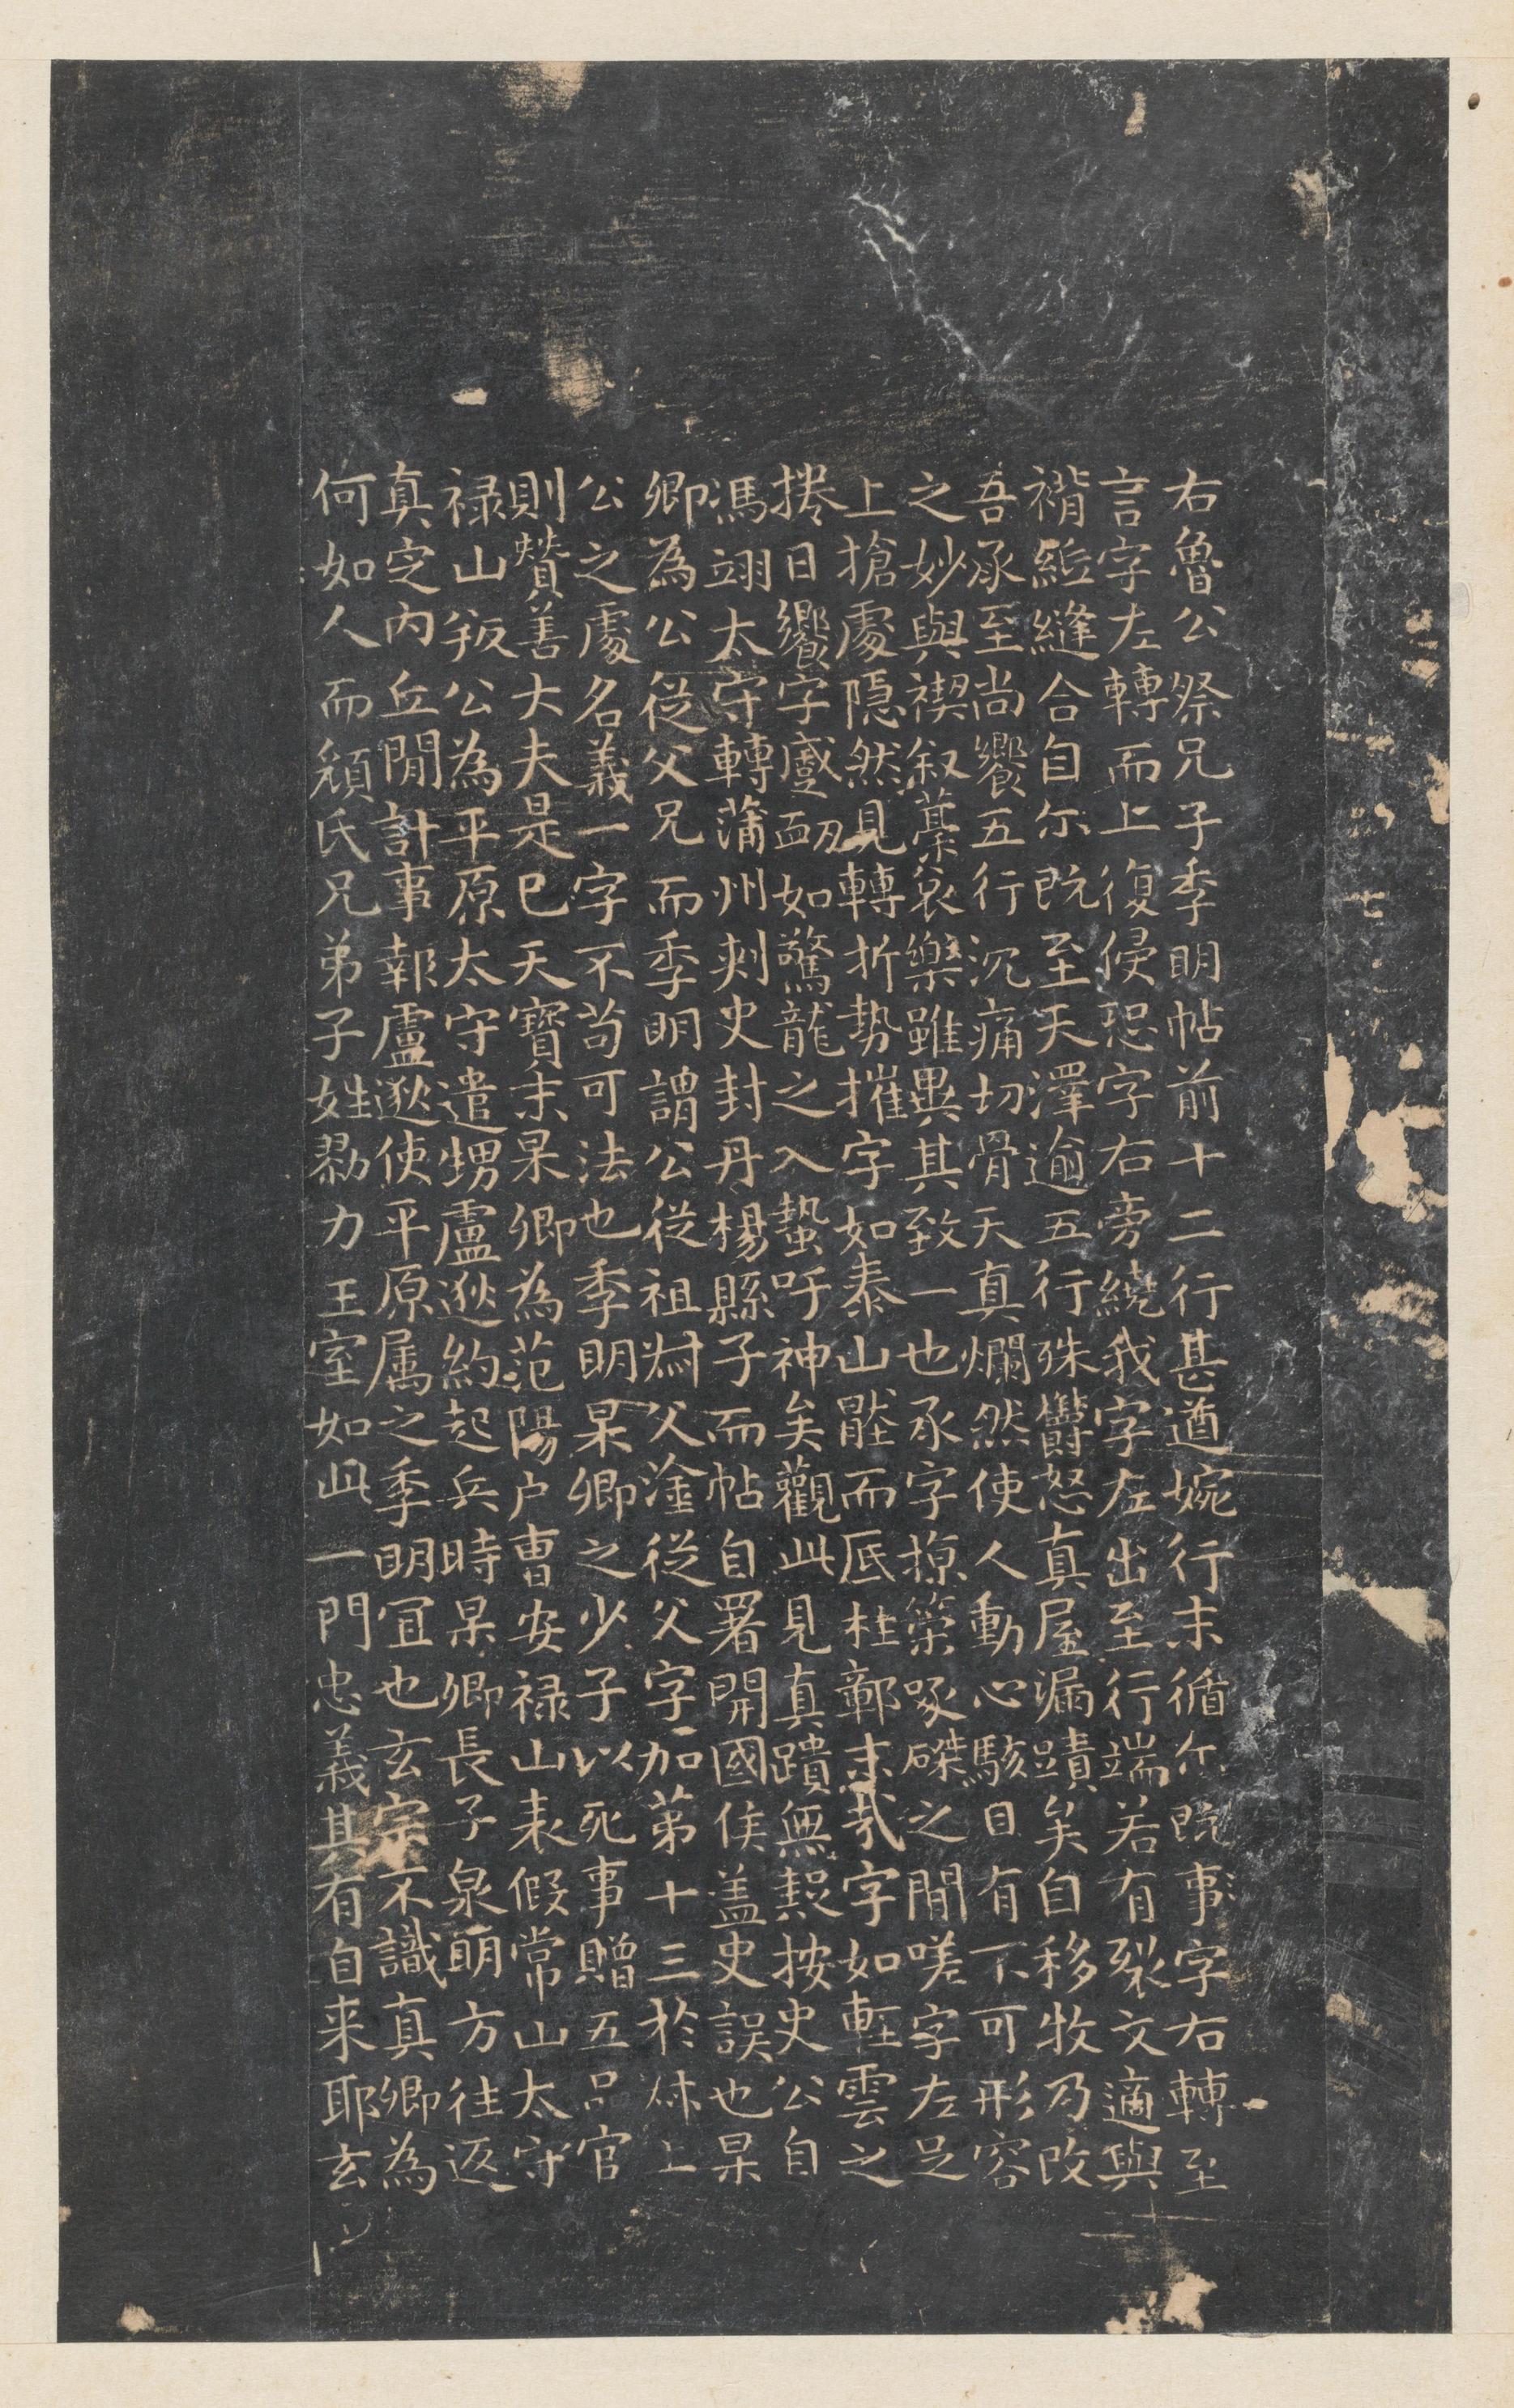 右魯公祭兄子季明帖前十二行甚遒婉行末循尓既事字右轉至
言字左轉而上復侵恐字右旁繞我字左出至行端若有裂文適與
褙紙縫合自尓既至天澤逾五行殊欝怒真屋漏蹟矣自移牧乃改
吾承至尚饗五行沉痛切骨天真爛然使人動心駭目有不可形容
之妙與禊叙藁哀樂雖異其致一也承字掠策啄磔之間嗟字左足
上搶處隱然見轉折勢摧字如泰山壓而底柱鄣末哉字如輕雲之
捲日饗字蹙衄如驚龍之入蟄吁神矣觀此見真蹟無疑按史公自
馮翊太守轉蒲州刺史封丹楊縣子而帖自署開國侯盖史誤也杲
卿為公從父兄而季明謂公從祖尌父淦從父字加第十三於尗上
公之處名義一字不茍可法也季明杲卿之少子以死事贈五品官
則贊善大夫是已天寶末杲卿為范陽户曹安禄山表假常山太守
禄山叛公為平原太守遣甥盧逖約起兵時杲卿長子泉明方往返
真定内丘間計事報盧逖使平原属之季明宜也玄宗不識真卿為
何如人而顔氏兄弟子姓勠力王室如此一門忠義其有自来耶玄